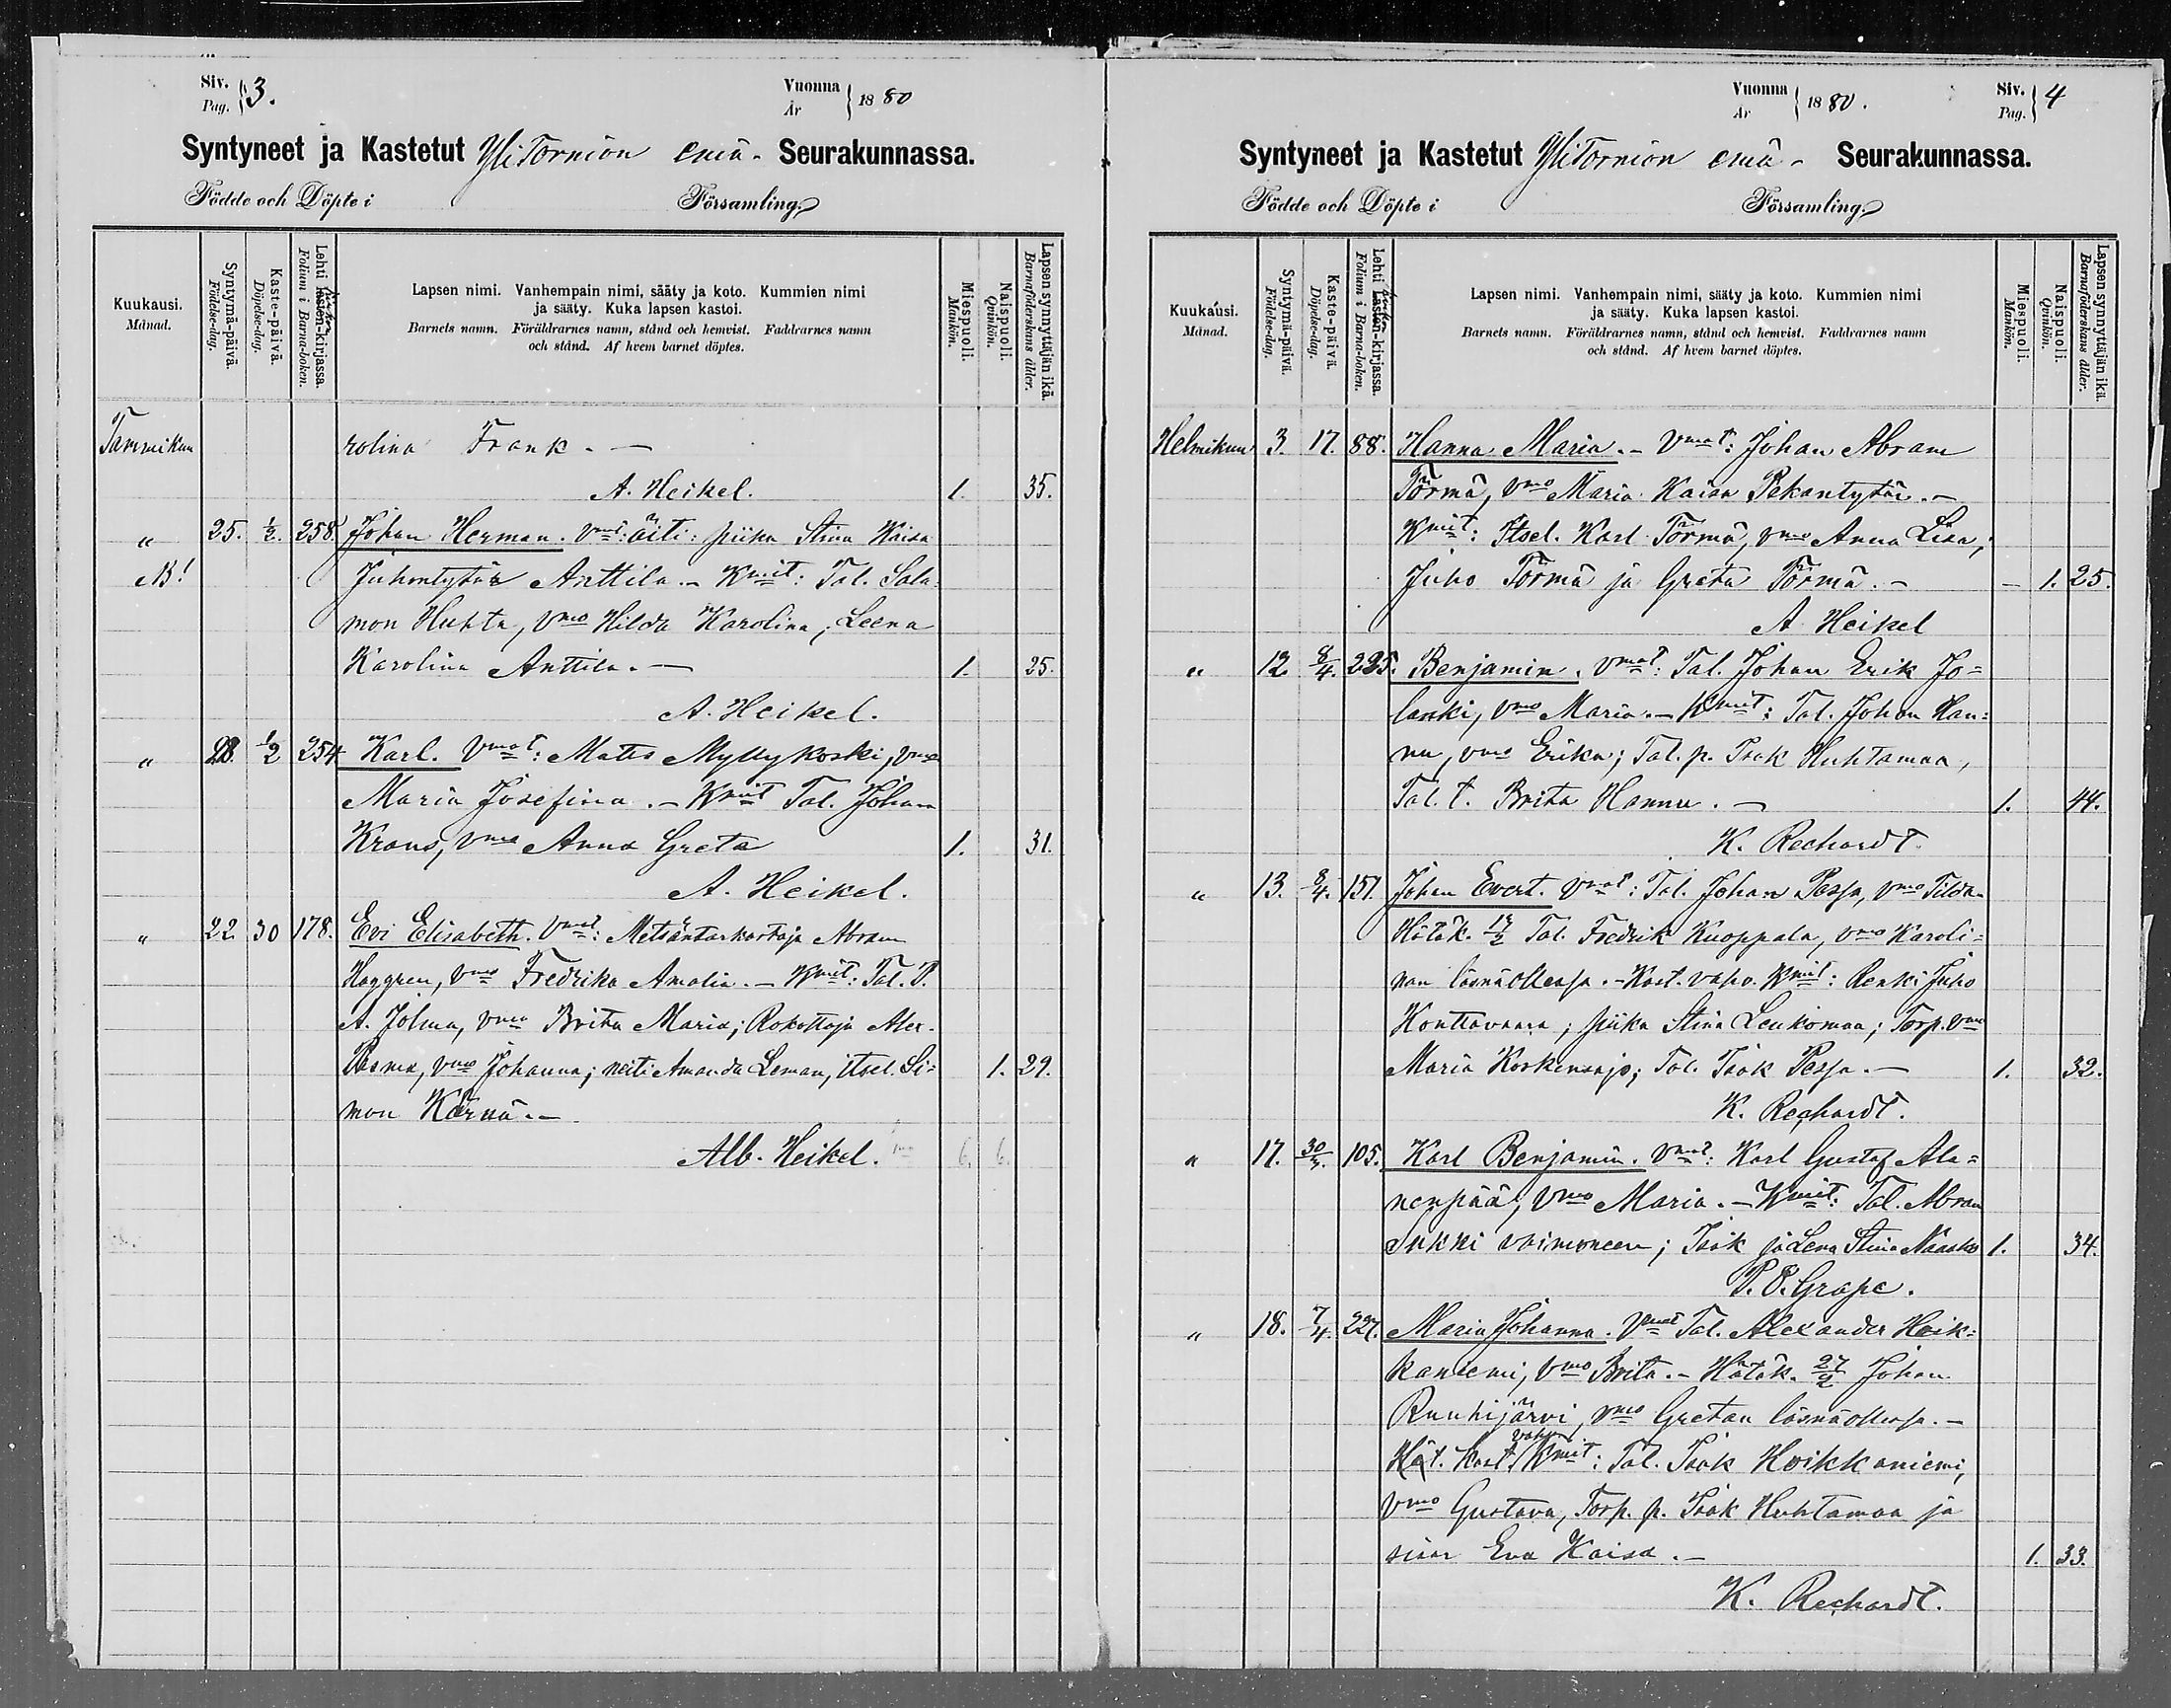 Siv. Pag. 3.
Vuonna År 1880
Syntyneet ja Kastetut YliTornion emä- Seurakunnassa.
Födde och Döpte i Församling.
Kuukausi. Månad.
Syntymä-päivä. Födelse-dag.
Kaste-päivä. Döpelse-dag.
Lehti lasten-kirjassa. Folium i Barna-boken.
Lapsen nimi. Vanhempain nimi, sääty ja koto. Kummien nimi
ja sääty. Kuka lapsen kastoi.
Barnets namn. Föräldrarnes namn, stånd och hemvist. Faddrarnes namn
och stånd. Af hvem barnet döptes.
Miespuoli. Mankön.
Naispuoli. Qvinkön.
Lapsen synnyttäjän ikä. Barnaföderskans ålder.
Tammikun rolina Frank. —
A. Heikel. 1. 35.
" 25. 1/2. 258. Johan Herman. Vmt: äiti: piika Stina Kaisa
NB! Juhontytär Anttila. - Kmit: Tal. Sala-
mon Huhta, vmo Hilda Karolina; Leena
Karolina Anttila. — 1. 25.
A. Heikel.
" 28. 1/2 254 Karl. Vmat: Matts Myllykoski, vmo
Maria Josefina. - Kmit Tal. Johan
Krans, vmo Anna Greta 1. 31.
A. Heikel.
" 22. 30 178. Evi Elisabeth. Vmat: Metsäntarkastaja Abram
Haggren, vmo Fredrika Amalia. - Kmit: Tal. P.
A. Jolma, vmo Brita Maria; Rokottaja Alex.
vmo Johanna; neiti Amanda Leman, itsel. Si- 1. 29.
mon Kärnä. —
Alb. Heikel. 6. 6.
Vuonna År 1880.
Siv. Pag. 4
Syntyneet ja Kastetut YliTornion emä- Seurakunnassa.
Födde och Döpte i Församling.
Kuukausi. Månad.
Syntymä-päivä. Födelse-dag.
Kaste-päivä. Döpelse-dag.
Lehti lasten-kirjassa. Folium i Barna-boken.
Lapsen nimi. Vanhempain nimi, sääty ja koto. Kummien nimi
ja sääty. Kuka lapsen kastoi.
Barnets namn. Föräldrarnes namn, stånd och hemvist. Faddrarnes namn
och stånd. Af hvem barnet döptes.
Miespuoli. Mankön.
Naispuoli. Qvinkön.
Lapsen synnyttäjän ikä. Barnaföderskans ålder.
Helmikun 3. 17. 88. Hanna Maria. - Vmat: Johan Abram
Törmä, vmo Maria Kaisa Pekantytär. -
Kmit: Itsel. Karl Törmä, vmo Anna Liisa;
Juho Törmä ja Greta Törmä. - — 1. 25.
A Heikel
" 12. 8/4. 225. Benjamin. Vmat: Tal. Johan Erik Jo-
lanki, vmo Maria. - Kmit: Tal. Johan Han-
nu, vmo Erika; Tal. p. Isak Huhtamaa,
Tal. t. Brita Hannu. — 1. 44.
K. Rechardt.
" 13. 8/4. 151. Johan Evert. Vmat: Tal. Johan Pessa, vmo Tilda
Hätäk. 14/2 Tal. Fredrik Kuoppala, vmo Karoli-
nan läsnäollessa. - Kast. vahv. Kmit: Renki Juho
Konttavaara; piika Stina Leukomaa; Torp. vmo
Maria Koskensajo; Tal. Isak Pessa. — 1. 32.
K. Rechardt.
" 17. 30/3. 105. Karl Benjamin. Vmat: Karl Gustaf Ala-
nenpää, vmo Maria. - Kmit: Tal. Abram
Sukki vaimoneen; Isak ja Lena Stina 1. 34.
P. E. Grape.
" 18. 7/4. 227. Maria Johanna. Vmat Tal. Alexander Hoik-
kaniemi, vmo Brita. - Hätäk. 27/2 Johan
Ruuhijärvi, vmo Gretan läsnäollessa. —
Hät. Kast. vahv. Kmit: Tal. Isak Hoikkaniemi,
vmo Gustava, Torp. p. Isak Huhtamaa ja
sisar Eva Kaisa. - 1. 33.
K. Rechardt.